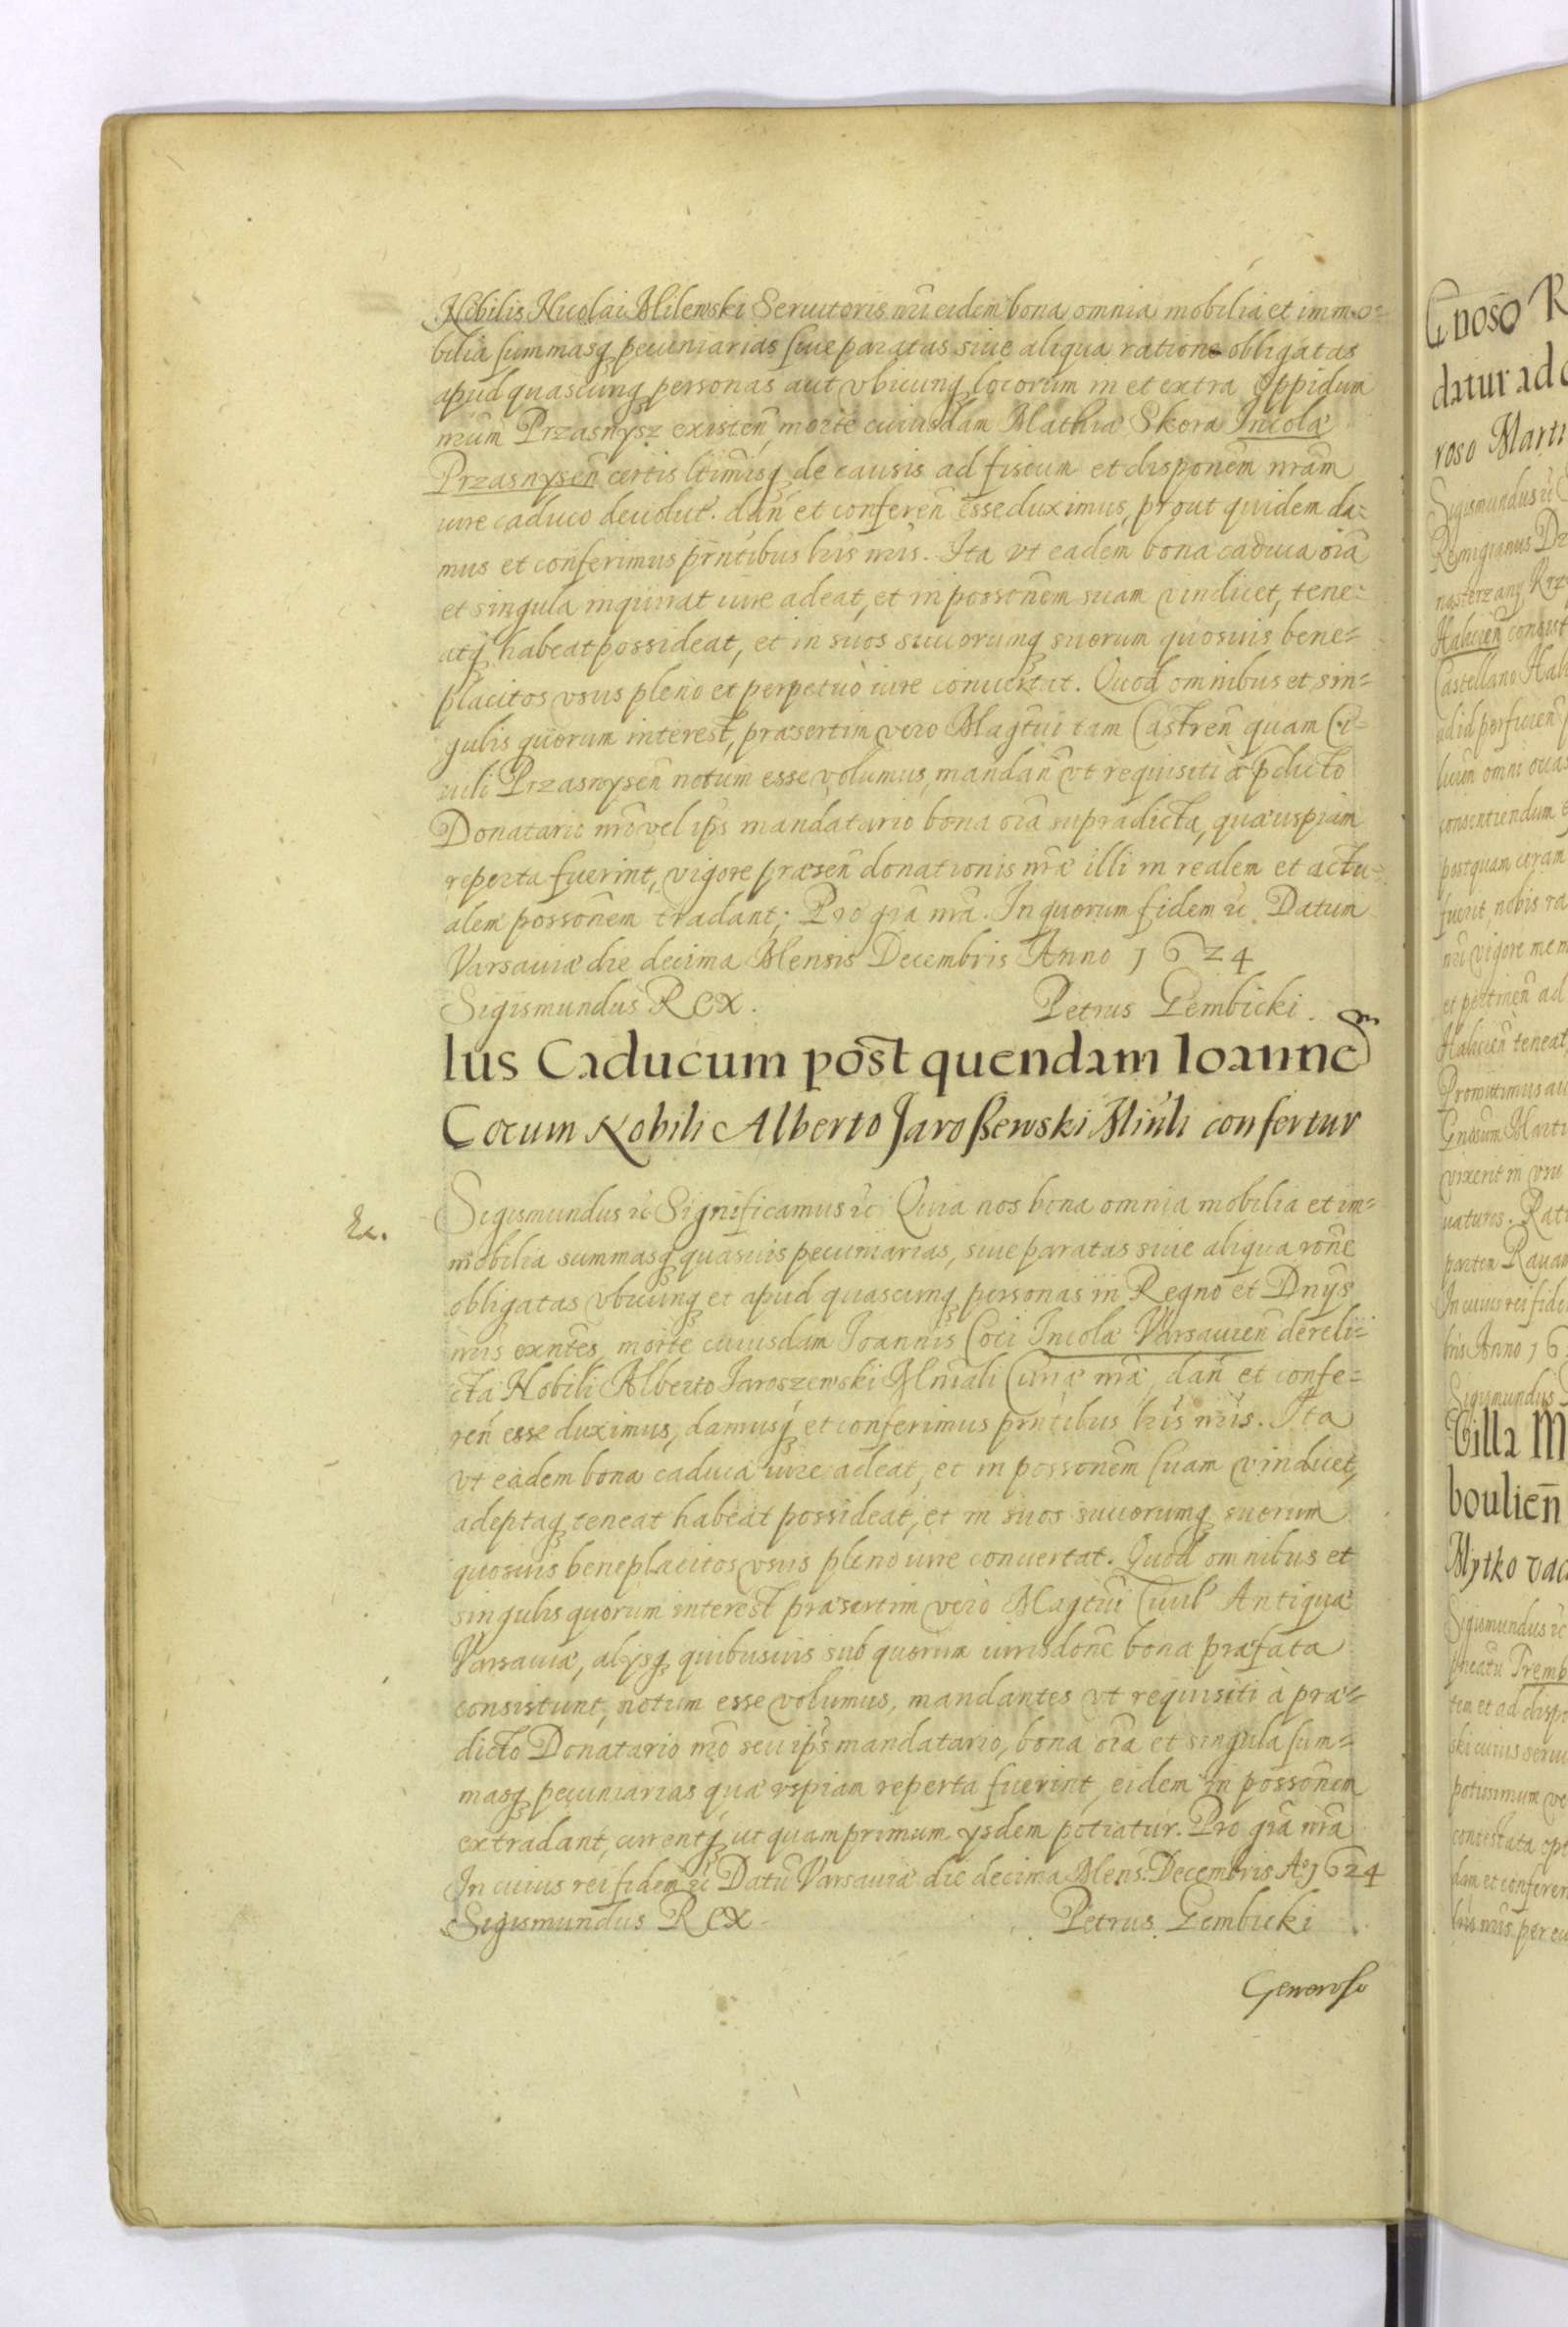 Nobilis Nicolai Milewski Seruitoris nri eidem bona omnia mobilia et immo=
bilia summasq pecuniarias siue paratas siue aliqua ratione obligatas
apud quascunq personas aut vbicunq locorum in et extra Oppidum
nrum Przasnysz existen, morte cuiusdam Mathiæ Skora Incolæ
Przasnysen certis ltimisq de causis ad fiscum et disponem nram
iure caduco deuolut. dan et conferen esse duximus, prout quidem da=
mus et conferimus pñtibus lris nris. Ita vt eadem bona caduca oia
et singula inquirat iure adeat, et in possonem suam vindicet, tene=
atq habeat possideat, et in suos suuorumq suorum quosuis bene=
placitos vsus pleno et perpetuò iure conuertat. Quod omnibus et sin=
gulis quorum interest, præsertim vero Magtui tam Castren quam Ci=
uili Przasnysen notum esse volumus, mandan vt requisiti à pdicto
Donatario nro vel ips mandatario bona oia supradicta, quæ uspiam
reperta fuerint, vigore præsen donationis nræ illi in realem et actu=
alem possonem tradant; Pro gia nra. In quorum fidem &c. Datum
Varsauiæ die decima Mensis Decembris Anno 1624
Sigismundus Rex. Petrus Gembicki.
Ius Caducum post quendam Ioannem
Cocum Nobili Alberto Jaroßewski Miñli confertur
Ex. Sigismundus &c Significamus &c Quia nos bona omnia mobilia et im=
mobilia summasq quasuis pecuniarias, siue paratas siue aliqua rone
obligatas vbicunq et apud quascunq personas in Regno et Dnijs
nris exntes, morte cuiusdam Joannis Coci Incolæ Varsauien dereli=
cta Nobili Alberto Jaroszewski Mniali Curiæ nræ, dan et confe=
ren esse duximus, damusq et conferimus pntibus lris nris. Ita
vt eadem bona caduca iure adeat, et in possonem suam vindicet,
adeptaq teneat habeat possideat, et in suos suuorumq suorum
quosuis beneplacitos vsus pleno iure conuertat. Quod omnibus et
singulis quorum interest præsertim verò Magtui Ciuil Antiquæ
Varsauiæ, alysq quibusuis sub quorum iurisdone bona præfata
consistunt, notum esse volumus, mandantes vt requisiti à præ=
dicto Donatario nro seu ips mandatario, bona oia et singula sum=
masq pecuniarias quæ vspiam reperta fuerint, eidem in possonem
extradant, curentq ut quamprimum ysdem potiatur. Pro gia nra
In cuius rei fidem &c Datu Varsauiæ die decima Mens. Decembris Ao 1624
Sigismundus Rex. Petrus Gembicki
Generoso
Gnoso R
datur ad
roso Marti
Sigismundus &c
Castellano Hali
ad id perficien
postquam coram
nri vigore mem
et pertinen ad
Halicien teneat
Promittimus au
Gnosum Marti
vixerit in
bris Anno 16
Sigismundus
Villa M
boulien
Mytko vac
Sigismundus &c
Tremb
tem et ad dispo
dam et conferen
lris nris per eu